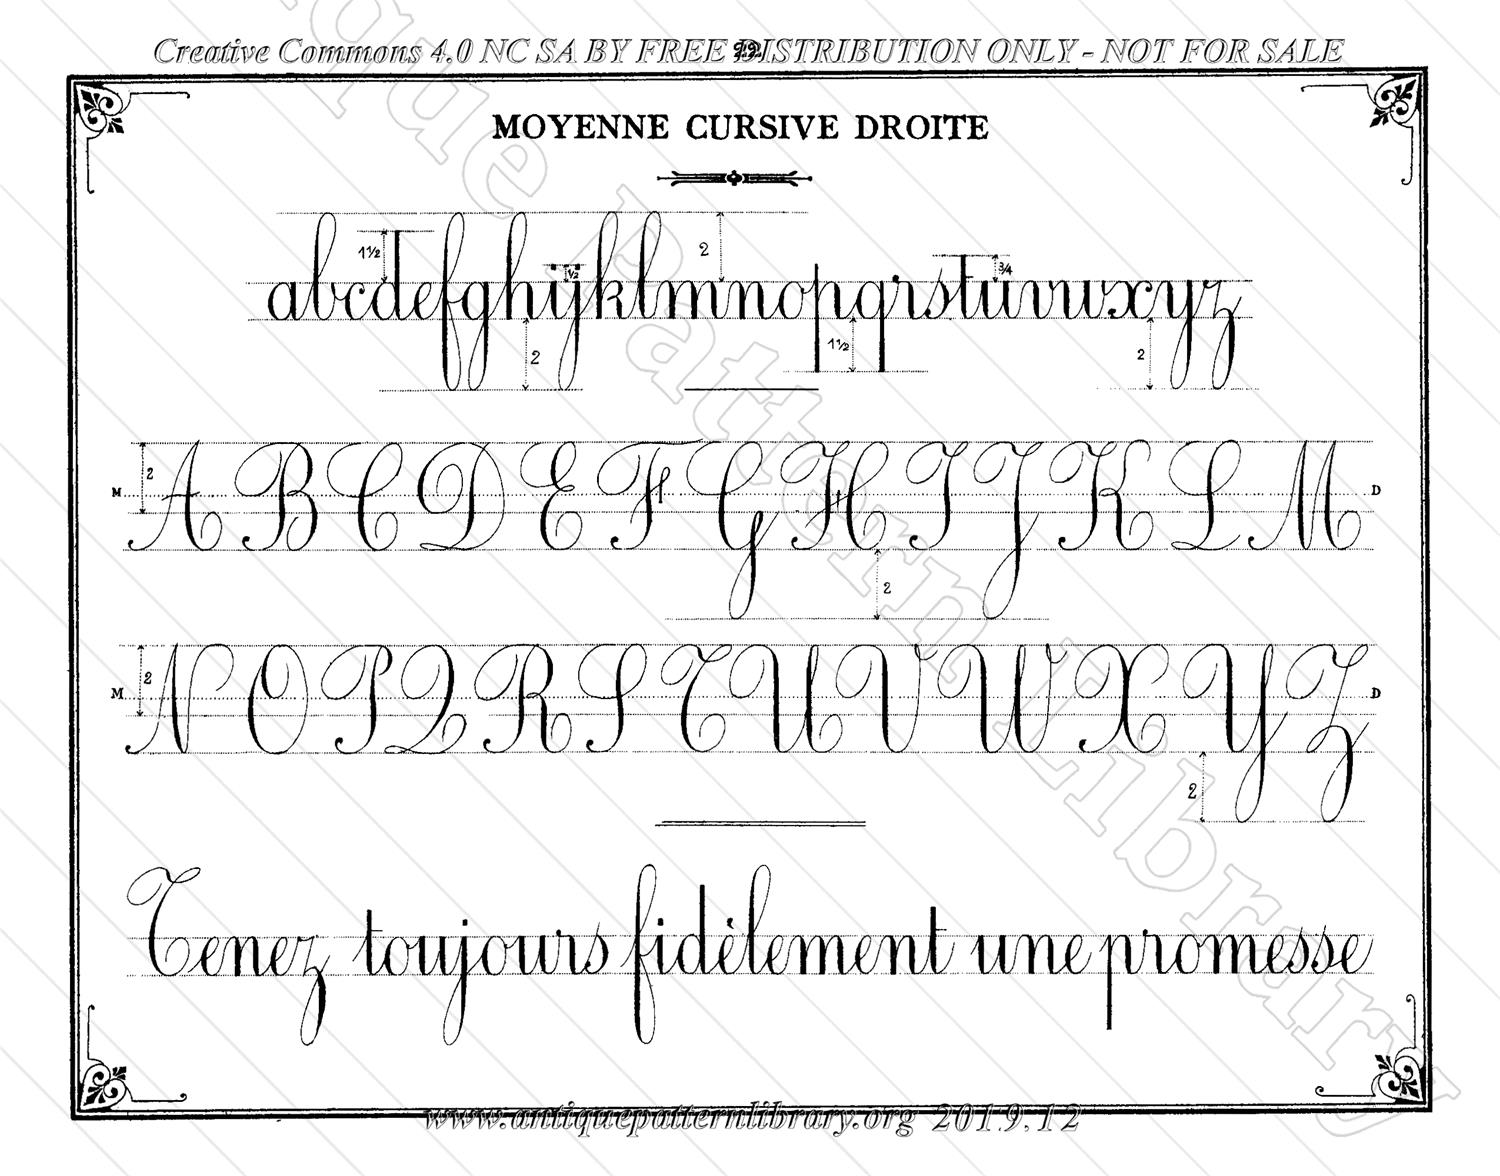 Creative Commons 4.0 NC SA BY FREE DISTRIBUTION ONLY - NOT FOR SALE
MOYENNE CURSIVE DROITE
abcdefghijklmnopqrstuvwxyz
1½ ½ 2 ¾
2 1½ 2
ABCDEFGHIJKLM
M 2 D
2
NOPQRSTUVWXYZ
M 2 D
2
Tenez toujours fidèlement une promesse
www.antiquepatternlibrary.org 2019.12
Pattern Library